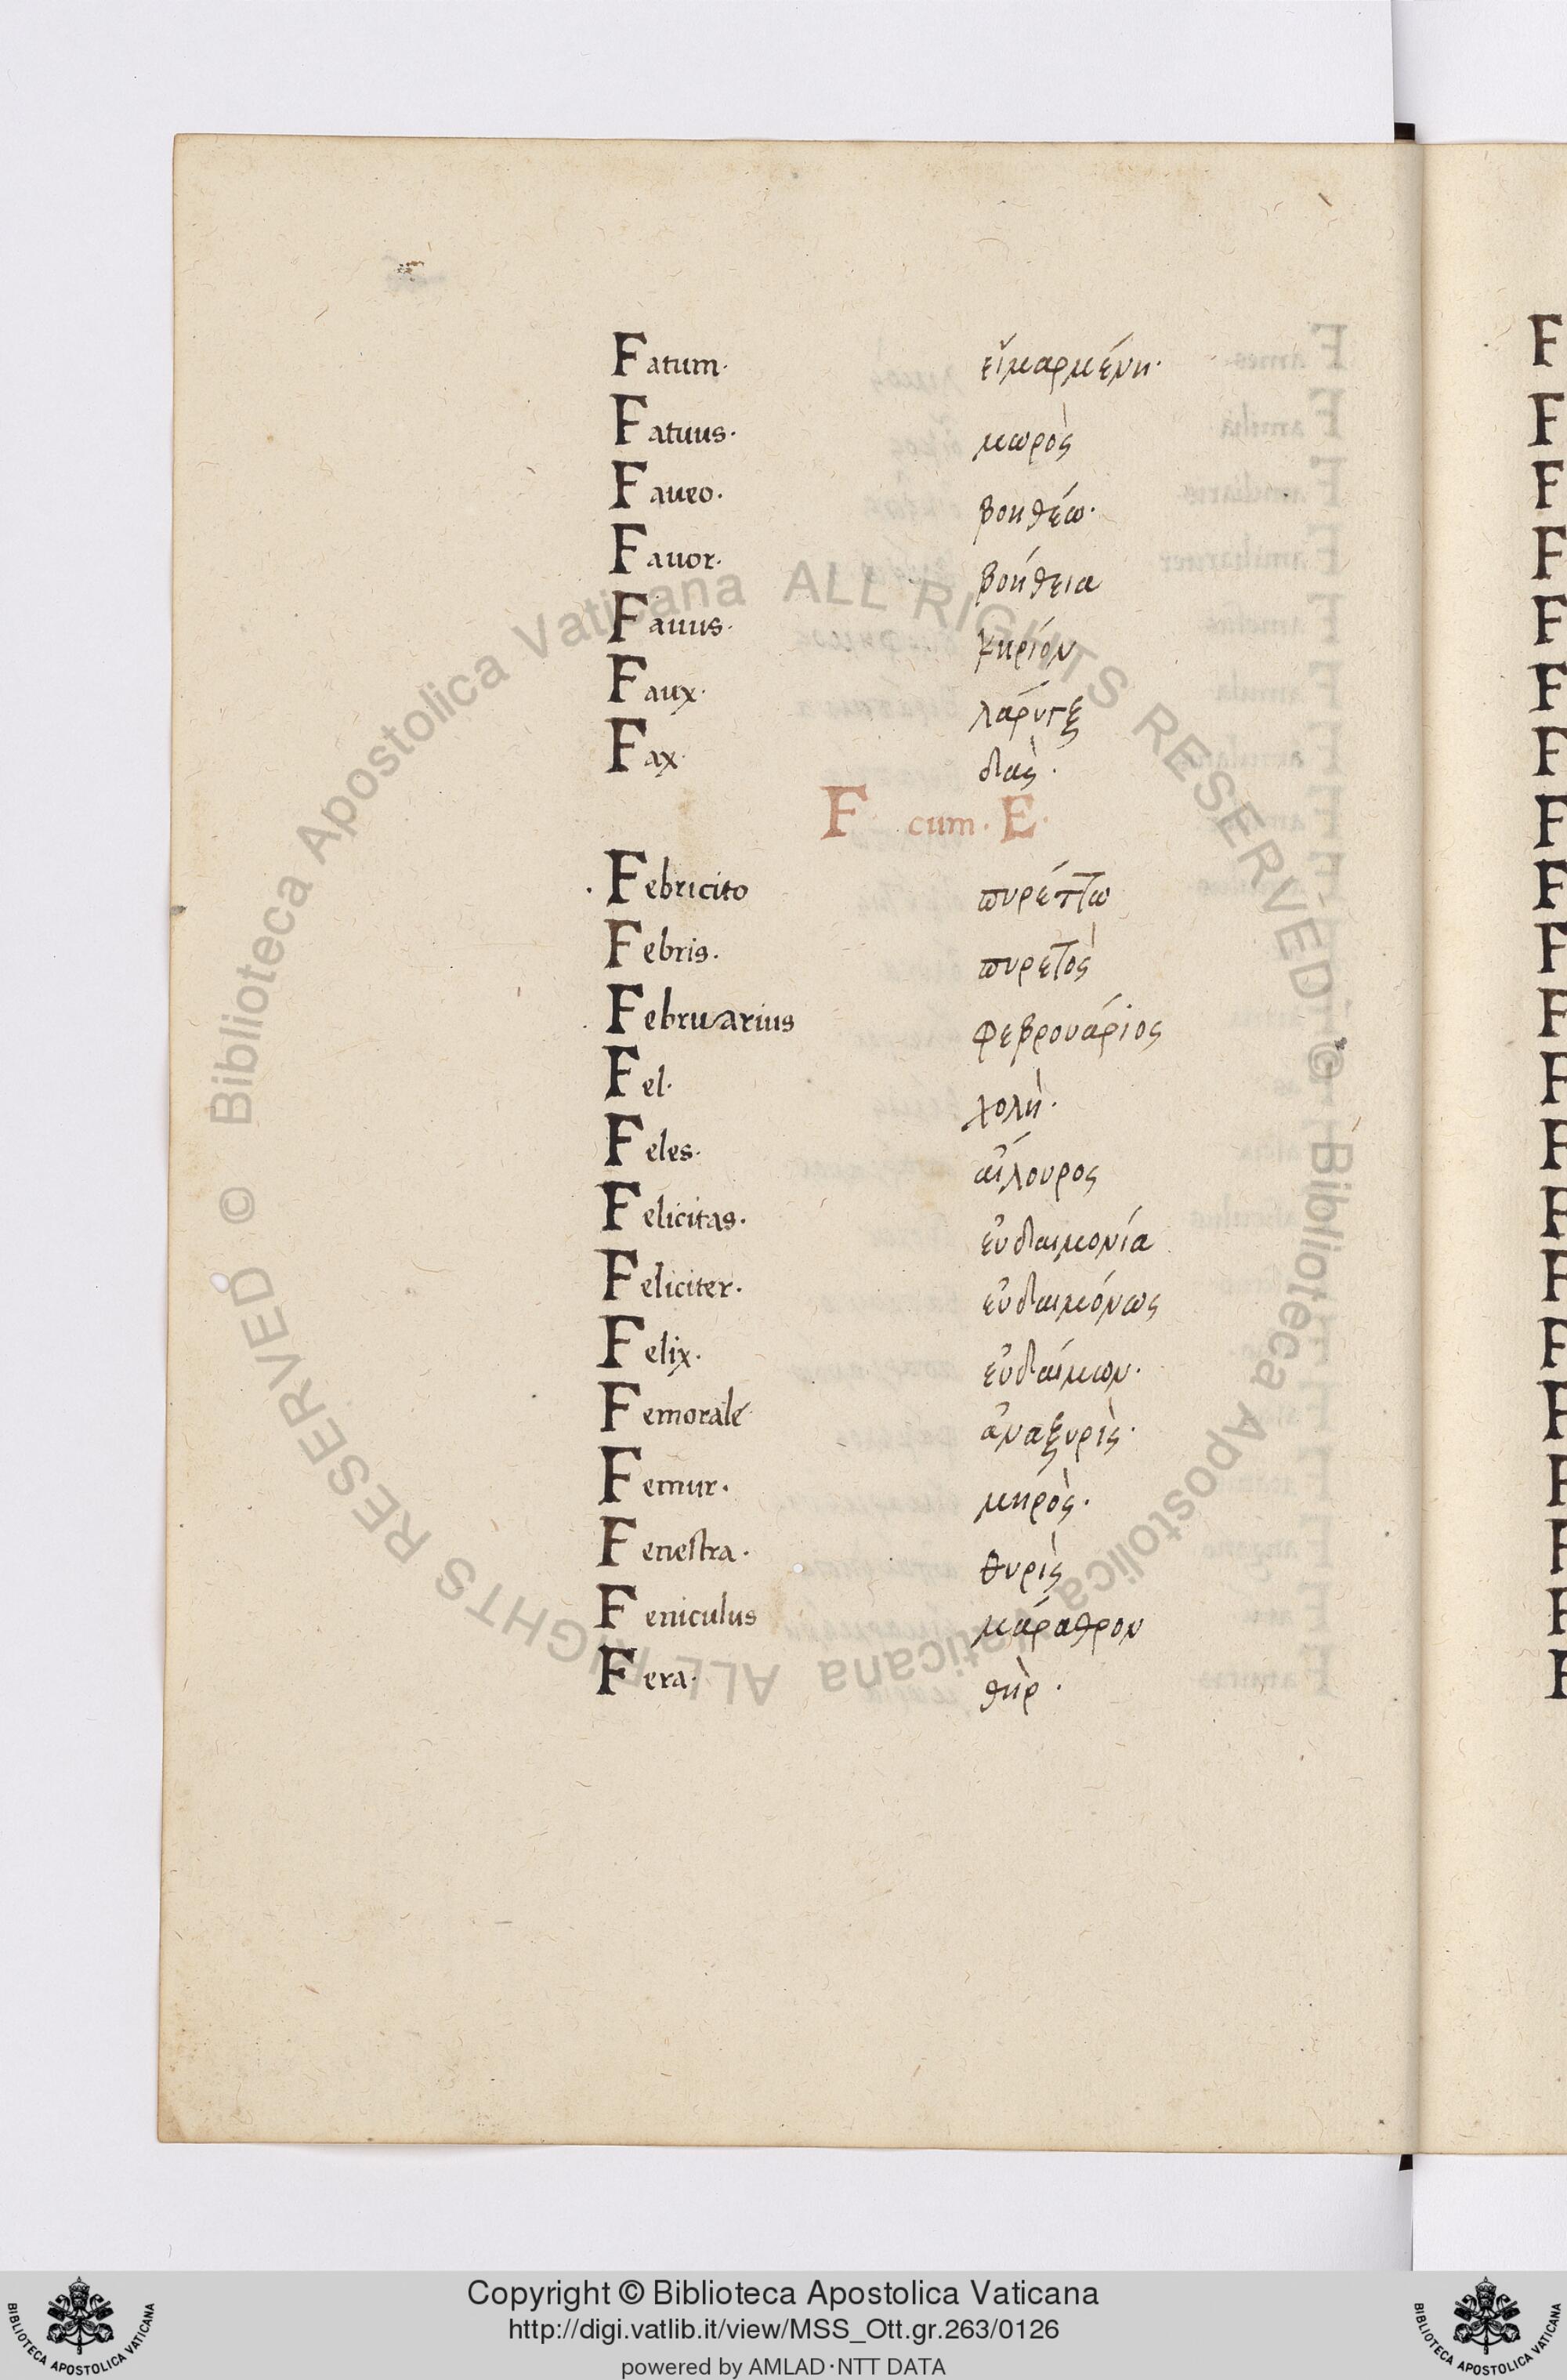 Fatum· εἱμαρμένη·
Fatuus· μωρὸς
Faueo· βοηθέω·
Fauor· βοήθεια
Fauus· κηρίον
Faux· λάρυγξ
Fax· δαὶς·
F cum· E·
Febricito πυρέττω
Febris· πυρετὸς
Februarius φεβρουάριος
Fel· χολὴ·
Feles· αἴλουρος
Felicitas· εὐδαιμονία
Feliciter· εὐδαιμόνως
Felix· εὐδαίμων·
Femorale ἀναξυρὶς·
Femur· μηρὸς·
Fenestra· θυρὶς
Feniculus μάραθρον
Fera· θὴρ·
© Biblioteca Apostolica Vaticana ALL RIGHTS RESERVED © Biblioteca Apostolica Vaticana ALL RIGHTS RESERVED
Copyright © Biblioteca Apostolica Vaticana
http://digi.vatlib.it/view/MSS_Ott.gr.263/0126
powered by AMLAD·NTT DATA
BIBLIOTECA APOSTOLICA VATICANA
BIBLIOTECA APOSTOLICA VATICANA